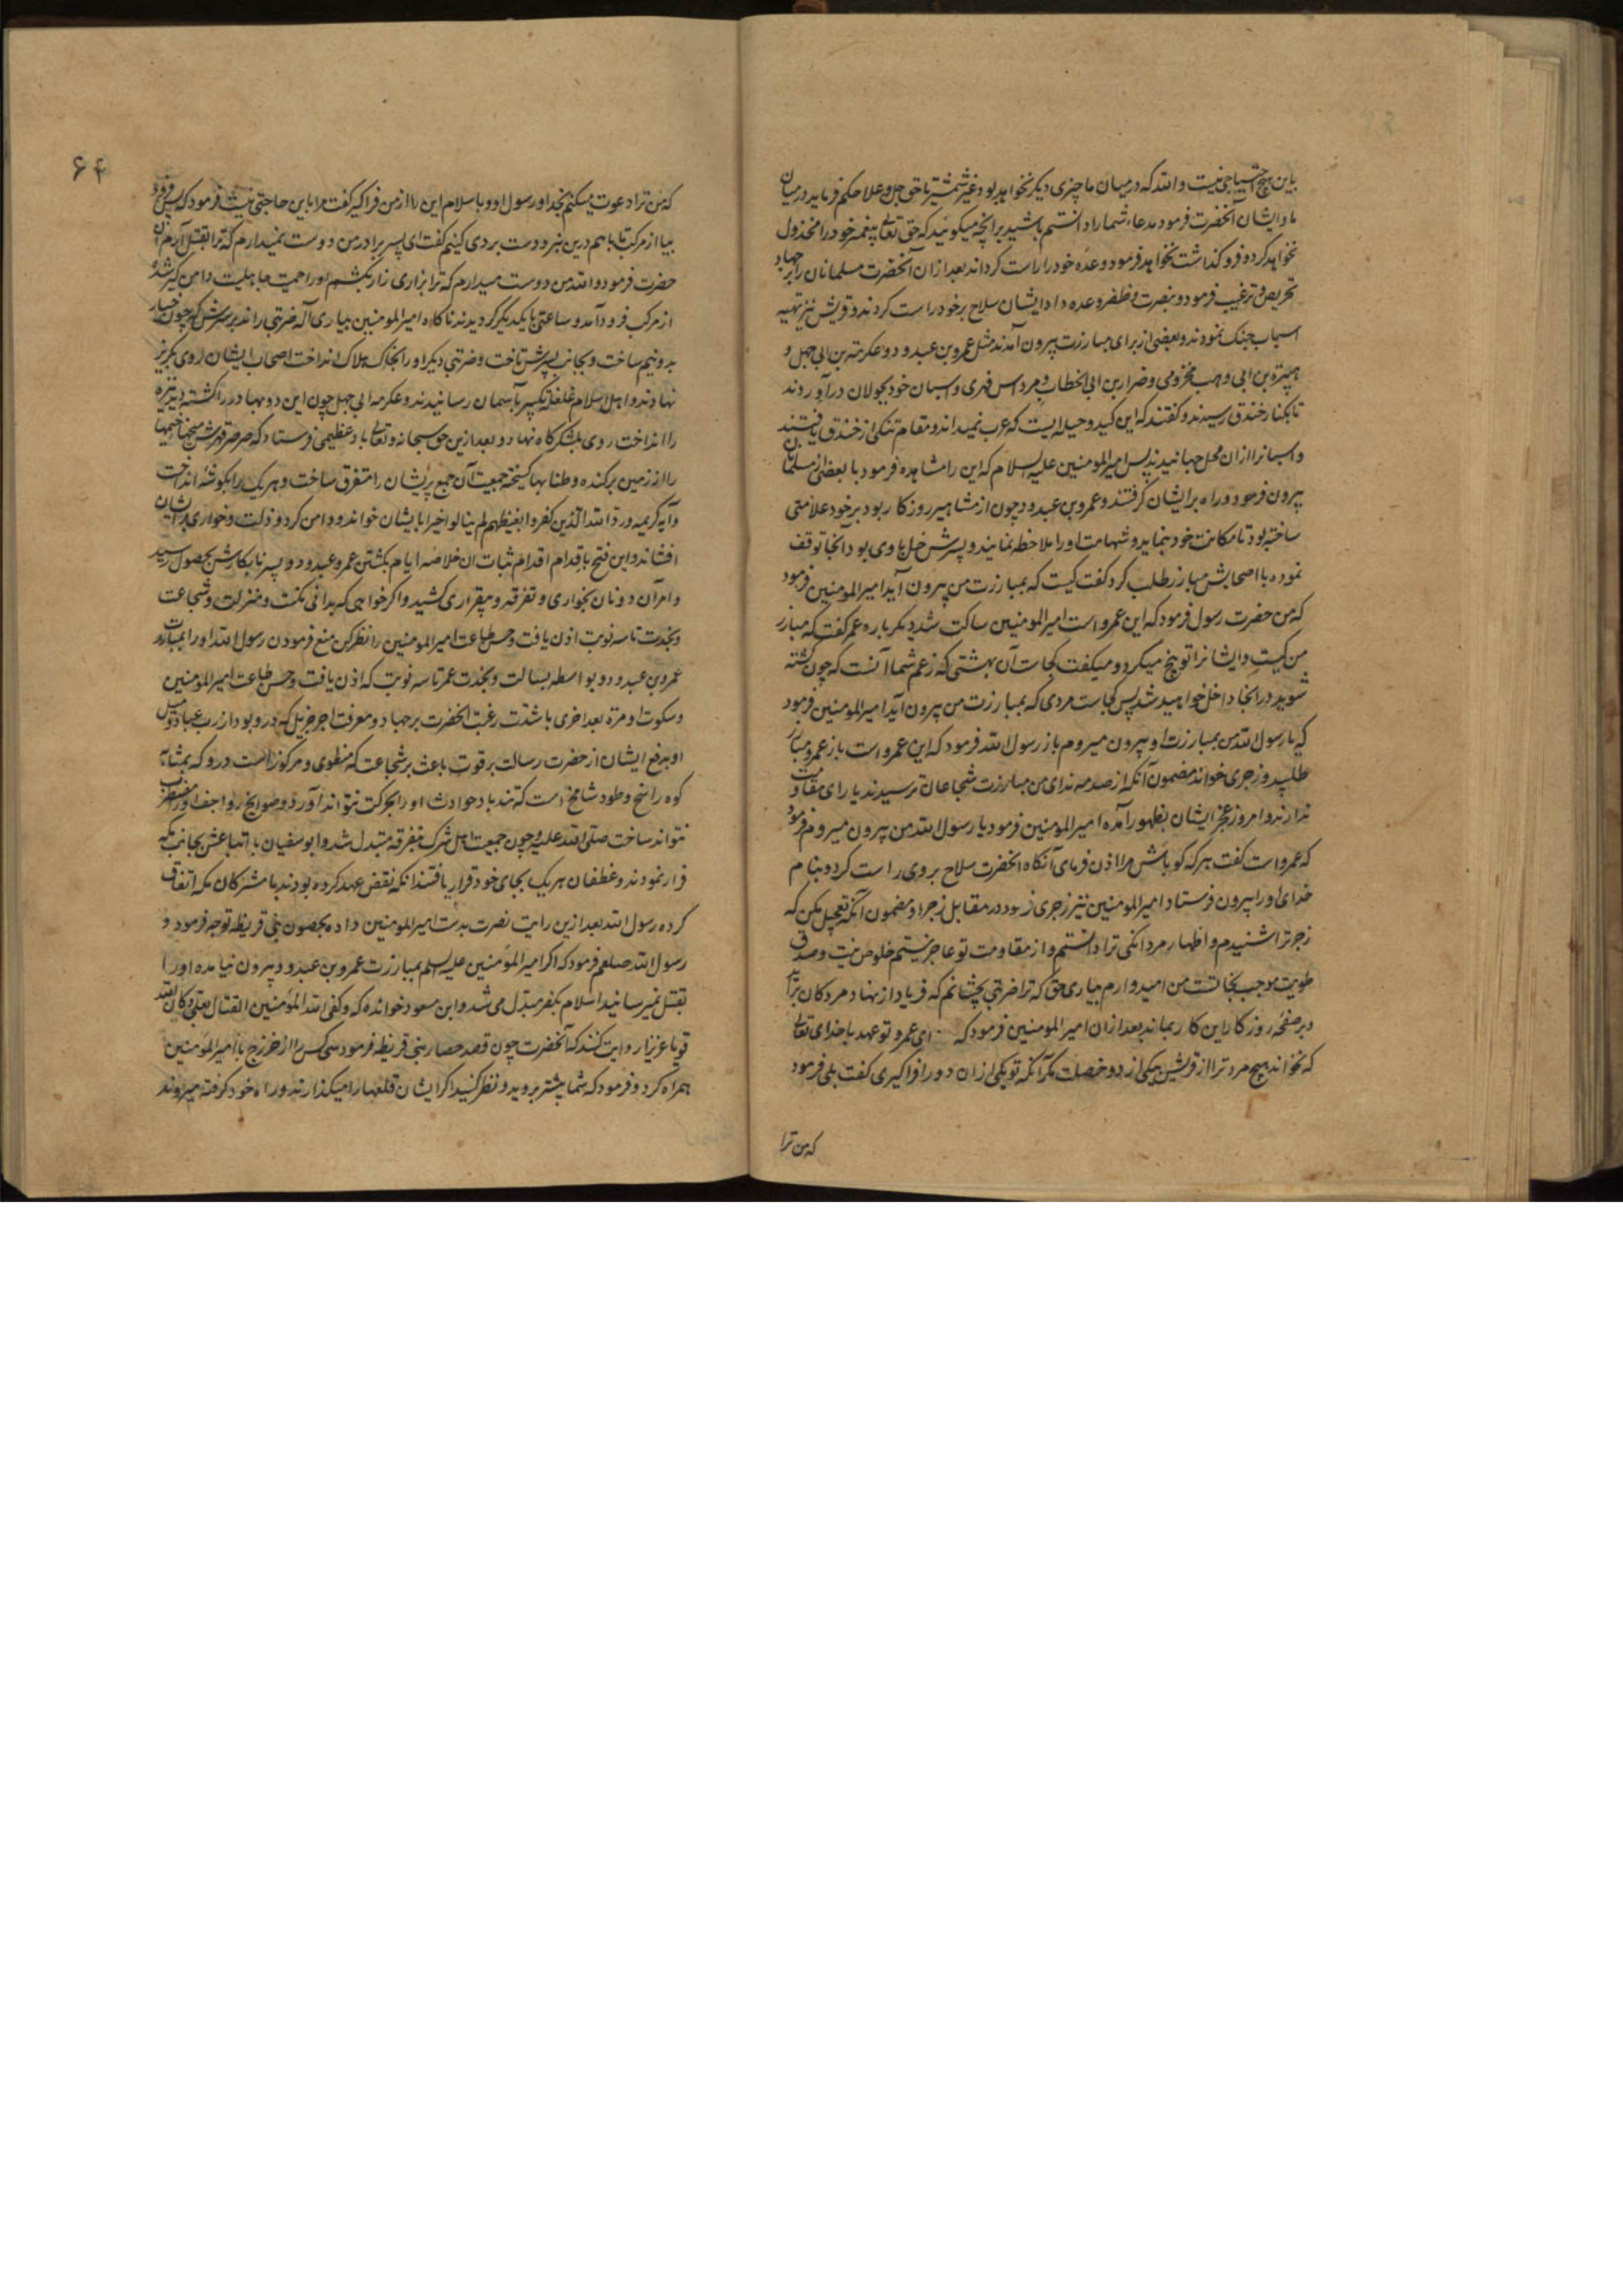 باین هیچ احتیاجی نیست والله که درمیان ما چیزی دیگر نخواهد بود غیر شمشیر تا حق جل و علا حکم فرماید درمیان
ما و ایشان آنحضرت فرمود مدعاء شما را دانستم باشید برانچه میکوئید که حق تعالی پیغمبر خود را مخذول
نخواهد کرد و فروکذاشت نخواهد فرمود و وعده خود را راست کرداند بعد ازان آنحضرت مسلمانان را بر جهاد
تحریص و ترغیب فرمود و بنصرت و ظفر وعده داد ایشان سلاح بر خود راست کردند و قریش نیز تهیه
اسباب جنک نمودند و بعضی از برای مبارزت بیرون آمدند مثل عمرو بن عبدود و عکرمة بن ابی جهل و
هبیرة بن ابی وهب مخزومی و ضرار بن ابی الخطاب و مرداس فهری و اسبان خود بجولان درآوردند
تا بکنار خندق رسیدند و کفتند که این کید و حیله ایست که عرب نمیداند و مقام تنکی از خندق یافتند
و اسبانرا ازان محل جهانیدند پس امیرالمومنین علیه السلام که این را مشاهده فرمود با بعضی از مسلمانان
بیرون فرمود و راه بر ایشان کرفتند و عمرو بن عبدود چون از مشاهیر روزکار بود بر خود علامتی
ساخته بود تا مکانت خود بنماید و شهامت او را ملاحظه نمایند و پسرش حسل باوی بود آنجا توقف
نموده با اصحابش مبارز طلب کرد کفت کیست که بمبارزت من بیرون آید امیرالمومنین فرمود
که من حضرت رسول فرمود که این عمرو است امیرالمومنین ساکت شد دیکر باره عمرو کفت که مبارز
من کیست و ایشانرا توبیخ میکرد و میکفت کجاست آن بهشتی که زعم شما آنست که چون کشته
شوید در انجا داخل خواهید شد پس کجاست مردی که بمبارزت من بیرون آید امیرالمومنین فرمود
که یا رسول الله من بمبارزت او بیرون میروم باز رسول الله فرمود که این عمرو است باز عمرو مبارز
طلبید و زجری خواند مضمون آنکه از صدمه ندای من مبارزت شجاعان ترسیدند یارای مقاومت
ندارند و امروز عجز ایشان بظهور آمده امیرالمومنین فرمود یا رسول الله من بیرون میروم فرمود
که عمرو است کفت هر که کو باش مرا اذن فرمای آنکاه انحضرت سلاح بر وی راست کرد و بنام
خدای او را بیرون فرستاد امیرالمومنین نیز زجری فرمود در مقابل زجر او مضمون آنکه تعجیل مکن که
زجر ترا شنیدم و اظهار مردانکی ترا دانستم و از مقاومت تو عاجز نیستم خلوص نیت و صدق
طویت موجب نجاتست من امیدوارم بیاری حق که ترا ضربتی بچشانم که فریاد از نهاد مردکان برآید
و بر صفحه روزکار این کار بماند بعد ازان امیرالمومنین فرمود که ای عمرو تو عهد با خدای تعالی
که نخواند هیچ مرد ترا از قریش بیکی از دو خصلت مکر آنکه تو یکی ازان دو را فراکیری کفت بلی فرمود
که من ترا
۶۴
که من ترا دعوت میکنم بخدا و رسول او و باسلام این را از من فراکیر کفت مرا باین حاجتی نیست فرمود که پس فرود
بیا از مرکب تا باهم درین نبرد دست بردی کنیم کفت ای پسر برادر من دوست نمیدارم که ترا بقتل آرم آن
حضرت فرمود والله من دوست میدارم که ترا بزاری زار بکشم او را حمیت جاهلیت دامن کیر شده
از مرکب فرود آمد و ساعتی با یکدیکر کردیدند ناکاه امیرالمومنین بیاری آله ضربتی راند بر سرش که چون خیار
بدو نیم ساخت و بجانب پسرش تاخت و ضربتی دیکر او را بخاک هلاک انداخت اصحاب ایشان روی بکریز
نهادند و اهل اسلام غلغله تکبیر بآسمان رسانیدند و عکرمه ابی جهل چون این دو بهادر را کشته دید نیزه
را انداخت روی بلشکرکاه نهاد و بعد ازین حق سبحانه و تعالی باد عظیمی فرستاد که صرصر قهرش میخها خیمها
را از زمین برکنده و طنابها کسیخته جمعیت آن جمع پریشان را متفرق ساخت و هریک را بکوشه انداخت
و آیه کریمه ورد الله الذین کفروا بغیظهم لم ینالوا خیرا بایشان خوانده و دامن کرد و ذلت و خواری بر ایشان
افشاند و این فتح باقدام اقدام ثبات ان خلاصه ایام بکشتن عمرو عبدود و پسر نابکارش بحصول رسید
و امر آن دونان بخواری و تفرقه و بیقراری کشید و اکر خواهی که بدانی مکنت و منزلت و شجاعت
و نجدت تا سه نوبت اذن یافت و حسن طاعت امیرالمومنین را نظر کن منع فرمودن رسول الله او را بمبارزت
عمرو بن عبدود بواسطه بسالت و نجدت عمرو تا سه نوبت که اذن یافت و حسن طاعت امیرالمومنین
و سکوت او مرة بعد اخری با شدت رغبت انحضرت بر جهاد و معرفت اجر جزیل که درو بود از رب عباد و میل
او بدفع ایشان از حضرت رسالت بر قوت باعث بر شجاعت که منطوی و مرکوز است درو که بمثابه
کوه راسخ و طود شامخ است که تندباد حوادث او را بحرکت نتواند آورد و صوابخ رواجف او را مضطرب
نتواند ساخت صلی الله علیه و چون جمعیت اهل شرک بتفرقه متبدل شد و ابوسفیان با اتباعش بجانب مکه
فرار نمودند و غطفان هریک بجای خود قرار یافتند انکه نقض عهد کرده بودند با مشرکان مکه اتفاق
کرده رسول الله بعد ازین رایت نصرت بدست امیرالمومنین داده بحصون بنی قریظه توجه فرمود و
رسول الله صلعم فرمود که اکر امیرالمؤمنین علیه السلم بمبارزت عمرو بن عبدود بیرون نیامده او را
بقتل نمیرسانید اسلام بکفر مبدل می شد و ابن مسعود خوانده که وکفی الله المؤمنین القتال بعلی وکان الله
قویا عزیزا روایت کنند که آنحضرت چون قصد حصار بنی قریظه فرمود سی کس را از خزرج با امیرالمومنین
همراه کرد و فرمود که شما پیشتر بروید و نظر کنید اکر ایشان قلعها را میکذارند و راه خود کرفته میروند